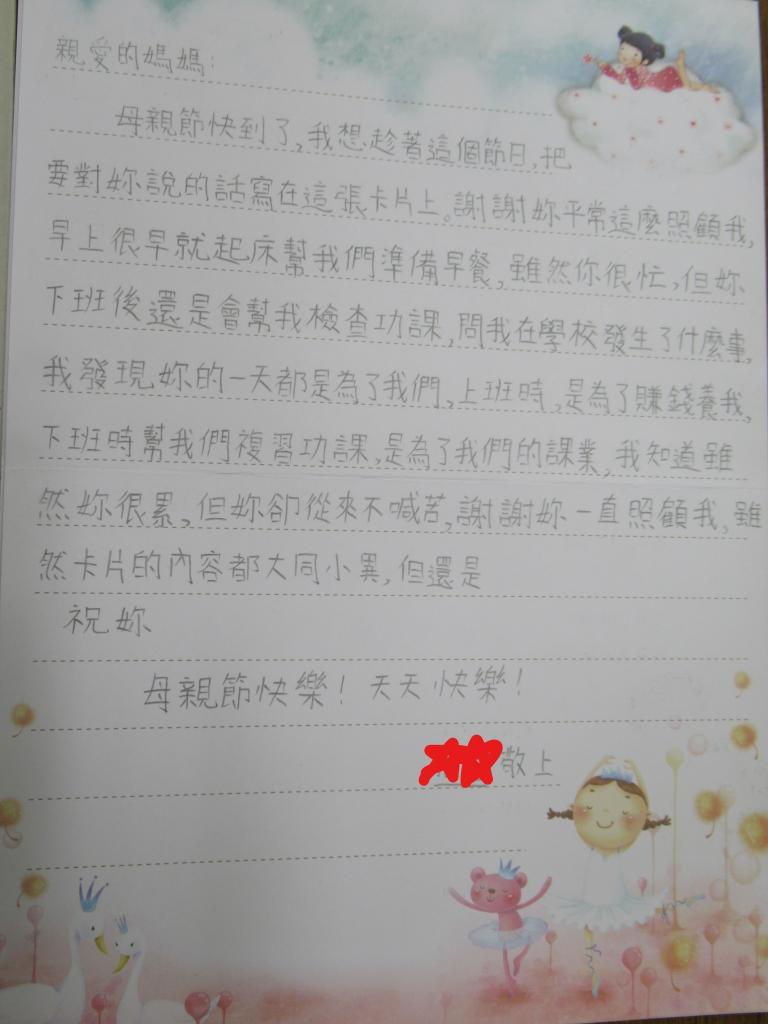 親愛的媽媽：
母親節快到了,我想趁著這個節日,把
要對妳說的話寫在這張卡片上。謝謝妳平常這麼照顧我,
早上很早就起床幫我們準備早餐,雖然你很忙,但妳
下班後還是會幫我檢查功課,問我在學校發生了什麼事,
我發現妳的一天都是為了我們,上班時,是為了賺錢養我,
下班時幫我們複習功課,是為了我們的課業,我知道雖
然妳很累,但妳卻從來不喊苦,謝謝妳一直照顧我,雖
然卡片的內容都大同小異,但還是
祝妳
母親節快樂！天天快樂！
敬上